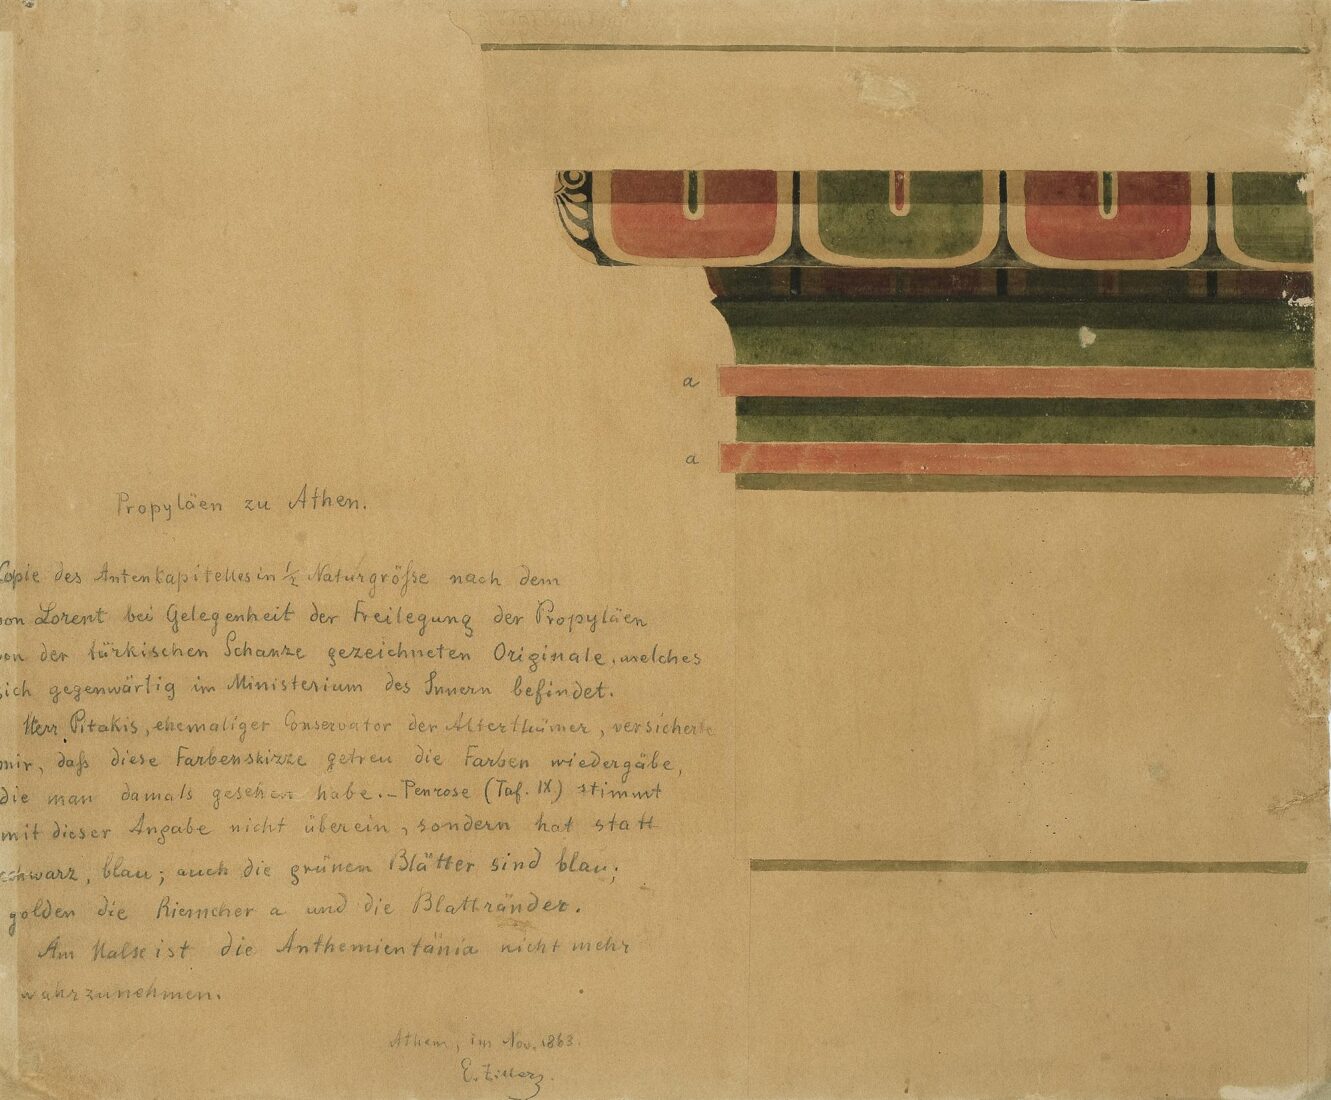 a
a
Propyläen zu Athen.
Copie des Antenkapitelles in 1/2 Naturgröſse nach dem
von Lorent bei Gelegenheit der Freilegung der Propyläen
von der türkischen Schanze gezeichneten Originale, welches
sich gegenwärtig im Ministerium des Innern befindet.
Herr Pitakis, ehemaliger Conservator der Alterthümer, versicherte
mir, daſs diese Farbenskizze getreu die Farben wiedergäbe,
die man damals gesehen habe. – Penrose (Taf. IX.) stimmt
mit dieser Angabe nicht überein, sondern hat statt
schwarz, blau; auch die grünen Blätter sind blau;
golden die Riemchen a und die Blattränder.
Am Halse ist die Anthemientänia nicht mehr
wahrzunehmen.
Athen, im Nov. 1863.
E. Ziller